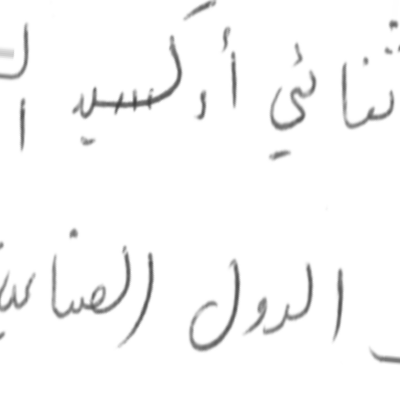 ثنائي أوكسيد ال
الدول الصناعية